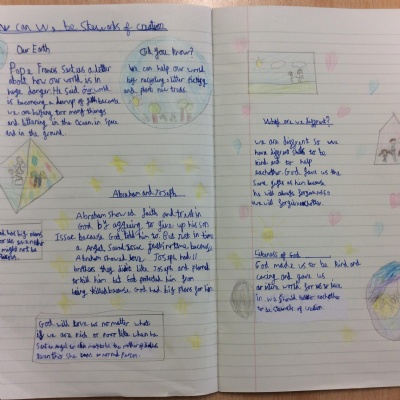 How can we be stewards of creation
Our Earth
Pope Francis sent us a letter
about how our world is in
huge danger. He said our world
is becoming a dump of filth because
we are buying too many things
and littering in the ocean in space
and in the ground.
Did you know?
We can help our world
by recycling, litter picking
and plant nice trees.
Abraham and Joseph
Abraham showed faith and trust in
God by agreeing to give up his son
Issac because God told him to. But just in time
a angel saved Issac
Abraham showed love. Joseph had 11
brothers they didn't like Joseph and planned
to kill him but God protected him from
being killed because God had big plans for him.
God has big plans
for us so we
might not be
God will love us no matter what
if we are rich or poor like when he
sent an angel to
Even tho she was a normal person.
Why are we different?
we are different so we
have different to be
kind and to help
eachother God gave us the
same gifts as him because
he will always forgive us so
we will forgive eachother.
Likeness of God
God made us to be kind and
caring and gave us
an entire world for us to live
in we should eachother
to be stewards of creation